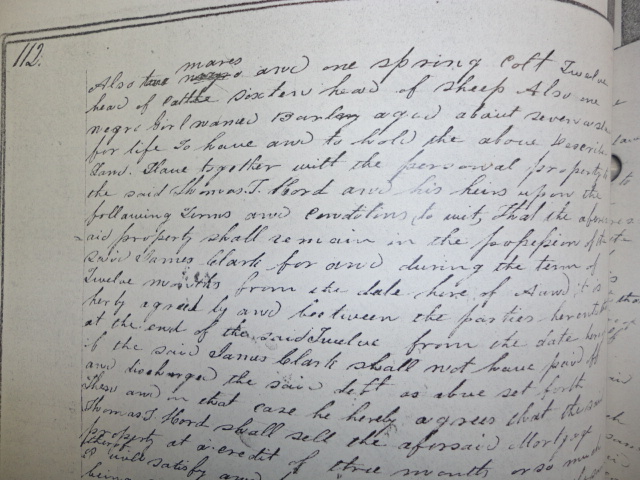 112.
mares
Also two and one spring Colt Twelve
head of Cattle Sixteen head of Sheep Also one
negro Girl named aged about seven a slave
for life To have and to hold the above Describe
Land. Slave together with the personal property to
the said Thomas. T. Hord and his heirs upon the
following Terms and Conditions, to wit, That the afores
aid property shall remain in the possession of the
said James Clark for and during the term of
Twelve months from the date here of And it is
herby agreed by and between the parties hereunto
at the end of the said Twelve from the date here
if the said James Clark shall not have paid off
and discharged the said debt as above set forth
Then and in that Case he hereby agrees that the said
Thomas T Hord shall sell the aforsaid Mortgage
property at a credit of three months or so much
will satisfy and
being